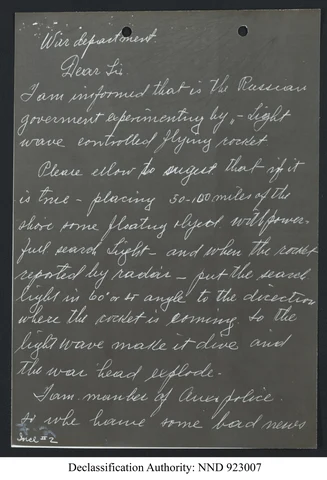 War department.
Dear Sir.
I am informed that is the Russian
goverment experimenting by,, - Light
wave controlled flying rocket
Please ellow to sugest that if it
is true - placing 50-100 miles of the
shore some floating object with power-
full search light - and when the rocket
reported by radar - put the search
light in 60° or angle to the direction
where the rocket is coming so the
light wave make it dive and
the war head explode.
I am member of police.
so whe have some bad news
Incl #2
Declassification Authority: NND 923007